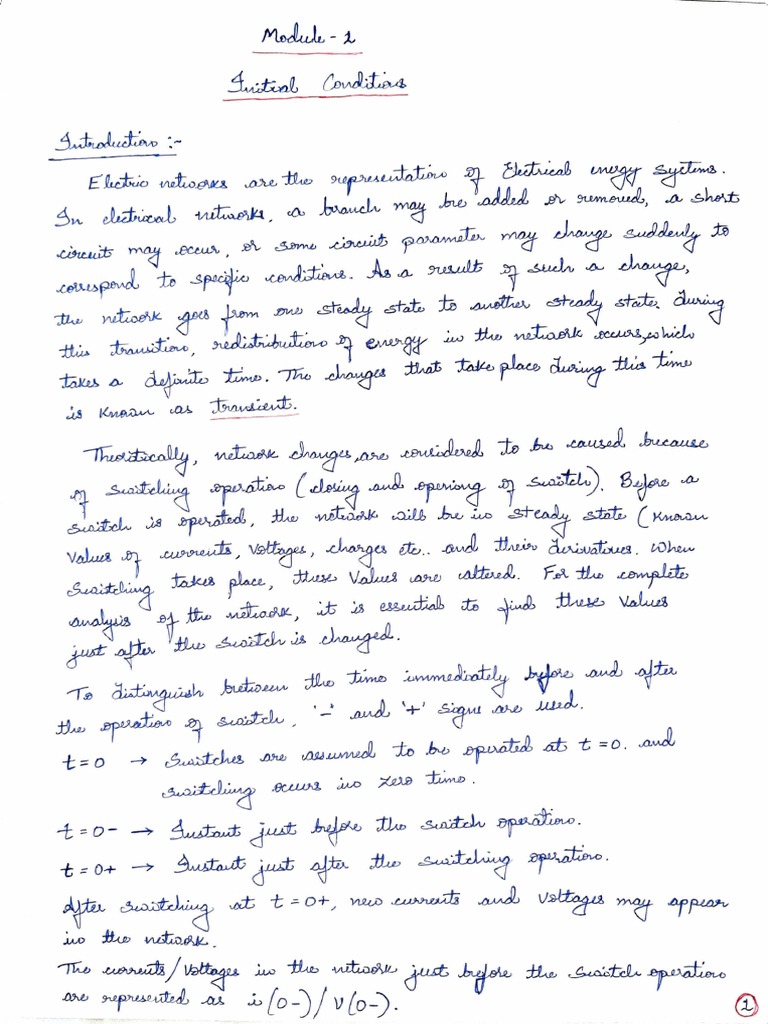 Module - 2
Initial Conditions
Introduction :-
Electric networks are the representation of Electrical energy systems.
In electrical networks, a branch may be added or removed, a short
circuit may occur, or some circuit parameter may change suddenly to
correspond to specific conditions. As a result of such a change,
the network goes from one steady state to another steady state. During
this transition, redistribution of energy in the network occurs, which
takes a definite time. The changes that take place during this time
is known as transient.
Theoritically, network changes, are considered to be caused because
of switching operation (closing and openiong of switch). Before a
switch is operated, the network will be in steady state (known
values of currents, voltages, charges etc.. and their derivatives. When
switching takes place, these values are altered. For the complete
analysis of the network, it is essential to find these values
just after the switch is changed.
To distinguish between the time immediately before and after
the operation of switch, '-' and '+' signs are used.
t = 0 → Switches are assumed to be operated at t = 0. and
switching occurs in zero time.
t = 0- → Instant just before the switch operation.
t = 0+ → Instant just after the switching operation.
After switching at t = 0+, new currents and voltages may appear
in the network.
The currents/voltages in the network just before the switch operation
are represented as i(0-) / v(0-).
1